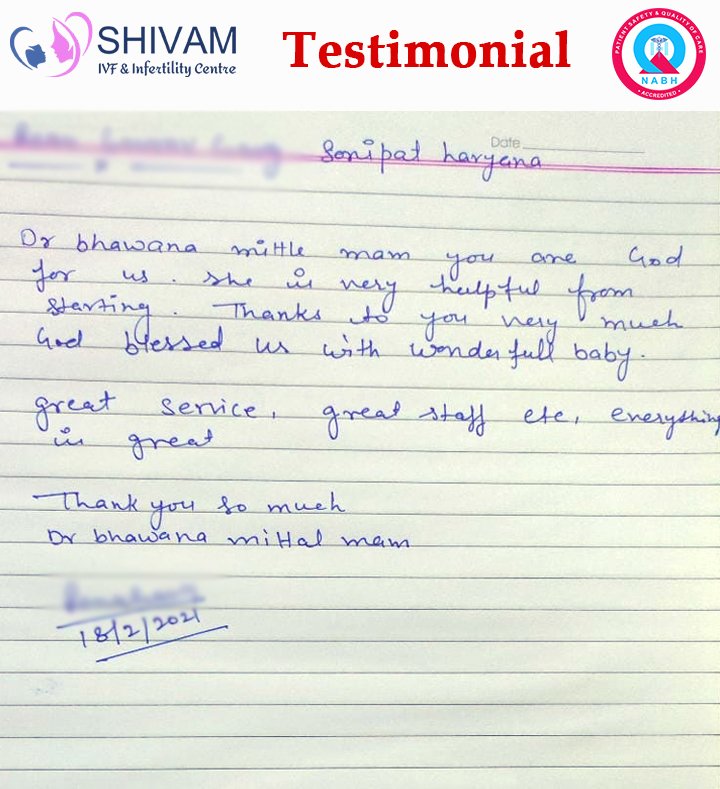 SHIVAM
IVF & Infertility Centre
Testimonial
PATIENT SAFETY & QUALITY OF CARE
NABH
• ACCREDITED •
Date
Sonipat haryana
Dr bhawana mittle mam you are God
for us. She is very helpful from
starting. Thanks to you very much
God blessed us with wonderfull baby.
great service, great staff etc, everything
is great
Thank you so much
Dr bhawana mittal mam
18/2/2021